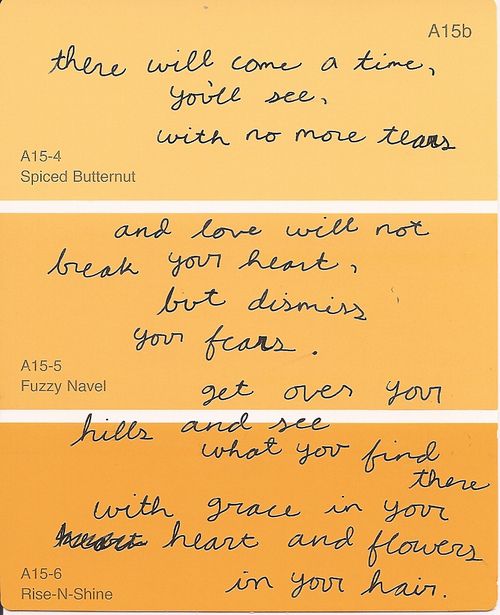 A15b
there will come a time,
you'll see,
with no more tears
A15-4
Spiced Butternut
and love will not
break your heart,
but dismiss
your fears.
A15-5
Fuzzy Navel
get over your
hills and see
what you find
there
with grace in your
heart and flowers
in your hair.
A15-6
Rise-N-Shine